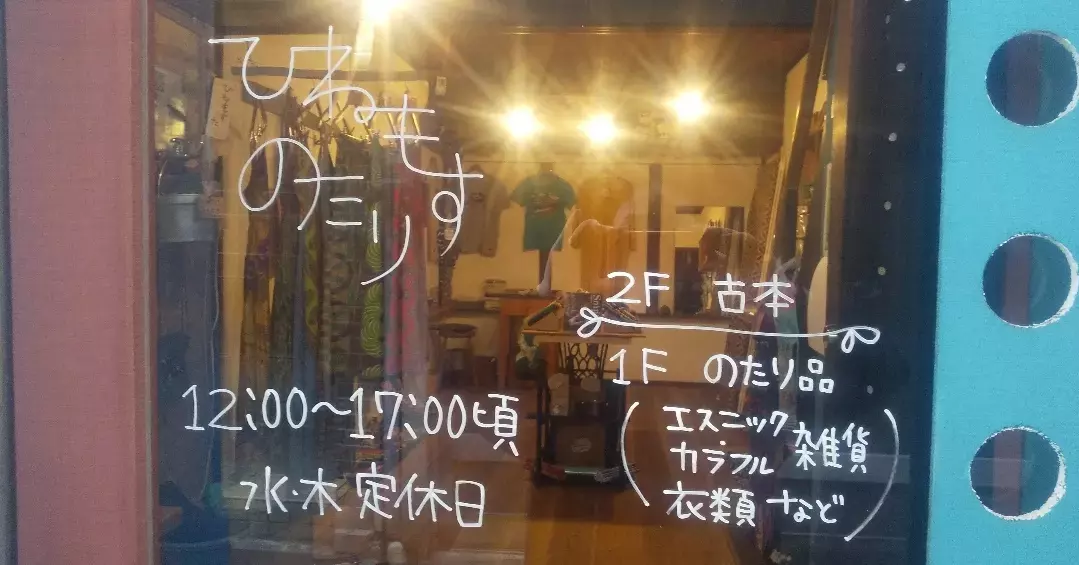 ひねもす
のたり
12:00～17:00頃
水・木 定休日
2F 古本
1F のたり品
(エスニック
カラフル 雑貨
衣類 など)